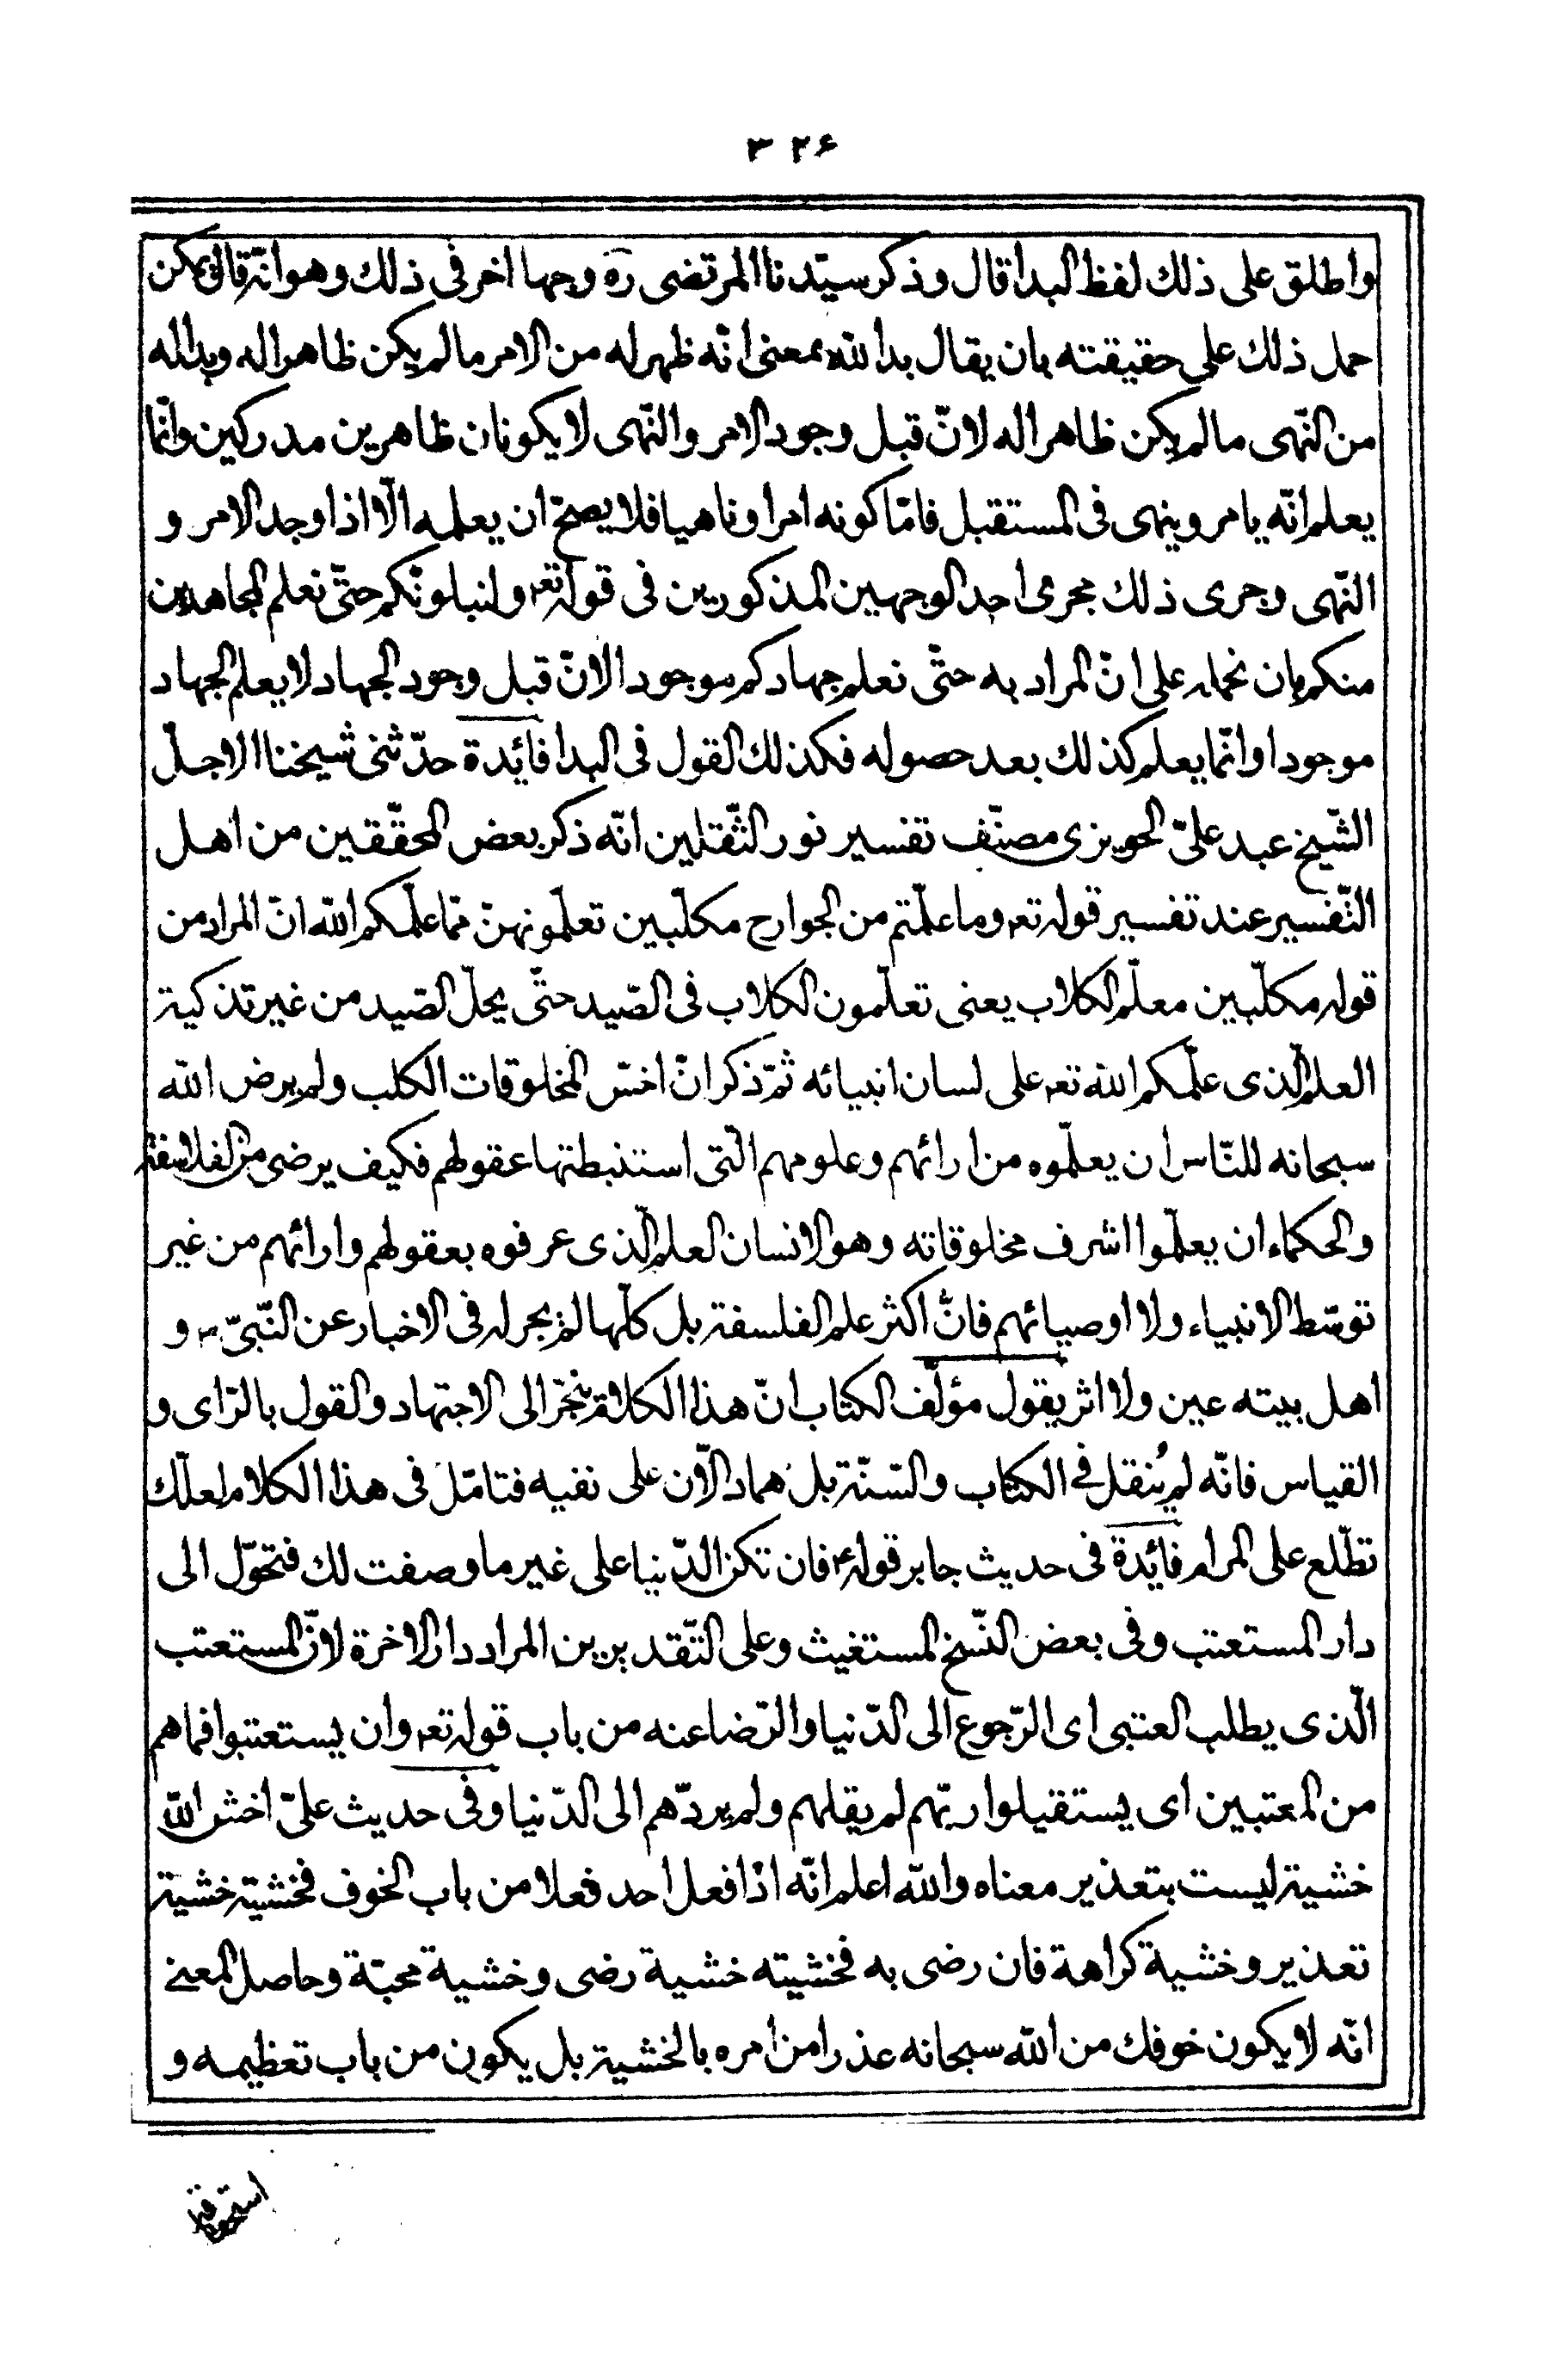 ۳۲۶
واطلق على ذلك لفظ البدا قال وذكر سيّدنا المرتضى ره وجها اخر فى ذلك وهو انّه قال يمكن
حمل ذلك على حقيقته بان يقال بدا لله بمعنى انّه ظهر له من الامر ما لم يكن ظاهرا له وبدا له
من النّهى ما لم يكن ظاهرا له لانّ قبل وجود الامر والنّهى لا يكونان ظاهرين مدركين وانّما
يعلم انّه يامر وينهى فى المستقبل فامّا كونه امرا وناهيا فلا يصحّ ان يعلمه الّا اذا وجد الامر و
النّهى وجرى ذلك مجرى احد الوجهين المذكورين فى قوله تعه ولنبلونّكم حتّى نعلم المجاهدين
منكم بان نحمله على انّ المراد به حتّى نعلم جهادكم موجودا لانّ قبل وجود الجهاد لا يعلم الجهاد
موجودا وانّما يعلم كذلك بعد حصوله فكذلك القول فى البدا فائدة حدّثنى شيخنا الاجلّ
الشّيخ عبد علىّ الحويزى مصنّف تفسير نور الثّقلين انّه ذكر بعض المحقّقين من اهل
التّفسير عند تفسير قوله تعه وما علّمتم من الجوارح مكلّبين تعلّمونهنّ ممّا علّمكم الله انّ المراد من
قوله مكلّبين معلّم الكلاب يعنى تعلّمون الكلاب فى الصّيد حتّى يحلّ الصّيد من غير تذكية
العلم الّذى علّمكم الله تعه على لسان انبيائه ثمّ ذكر انّ اخسّ المخلوقات الكلب ولم يرض الله
سبحانه للنّاس ان يعلّموه من ارائهم وعلومهم الّتى استنبطتها عقولهم فكيف يرضى من الفلاسفة
والحكماء ان يعلّموا اشرف مخلوقاته وهو الانسان العلم الّذى عرفوه بعقولهم وارائهم من غير
توسّط الانبياء ولا اوصيائهم فانّ اكثر علم الفلسفة بل كلّها لم يجر له فى الاخبار عن النّبىّ ص و
اهل بيته عين ولا اثر يقول مؤلّف الكتاب انّ هذا الكلام ينجرّ الى الاجتهاد والقول بالرّاى و
القياس فانّه لم يُنقل فى الكتاب والسّنّة بل هما دالّان على نفيه فتامّل فى هذا الكلام لعلّك
تطّلع على المرام فائدة فى حديث جابر قوله ع فان تكن الدّنيا على غير ما وصفت لك فتحوّل الى
دار المستعتب وفى بعض النّسخ المستغيث وعلى التّقديرين المراد دار الاخرة لانّ المستعتب
الّذى يطلب العتبى اى الرّجوع الى الدّنيا والرّضا عنه من باب قوله تعه وان يستعتبوا فما هم
من المعتبين اى يستقيلوا ربّهم لم يقلهم ولم يردّهم الى الدّنيا وفى حديث علىّ اخش الله
خشية ليست بتعذير معناه والله اعلم انّه اذا فعل احد فعلا من باب الخوف فخشيته خشية
تعذير وخشية كراهة فان رضى به فخشيته خشية رضى وخشية محبّة وحاصل المعنى
انّه لا يكون خوفك من الله سبحانه عذرا من امره بالخشية بل يكون من باب تعظيمه و